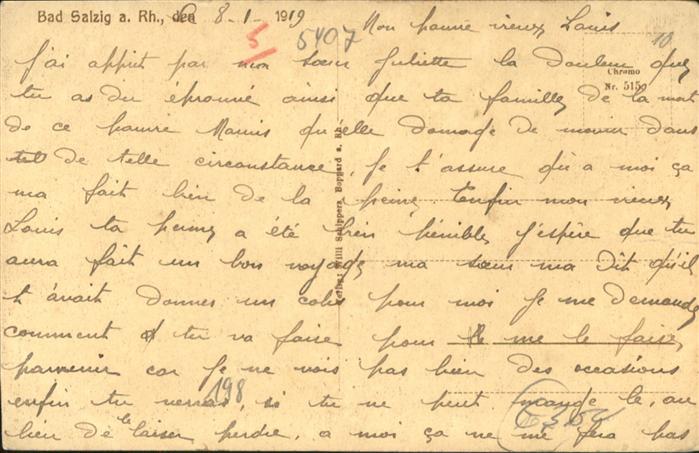 Bad Salzig a. Rh., den 8-1-1919
Mon pauvre vieux Louis
5 5407 10
J'ai apprit par ma sœur Juliette la douleur que
Chromo
Nr. 5159
tu as du éprouvé ainsi que ta famille de la mort
de ce pauvre qu'elle domage de mourir dans
de telle circonstance, je t'assure qu'a moi ça
ma fait bien de la peine, Enfin mon vieux
Louis ta a été bien pénible, j'espère que tu
aura fait un bon voyage, ma sœur ma dit qu'il
t'avait donner un colis pour moi je me demande
comment tu va faire pour me le faire
parvenir car je ne vois pas bien des occasions
enfin tu verras, si tu ne peut mange le, au
198
lieu de le laiser perdre, a moi ça ne me fera pas